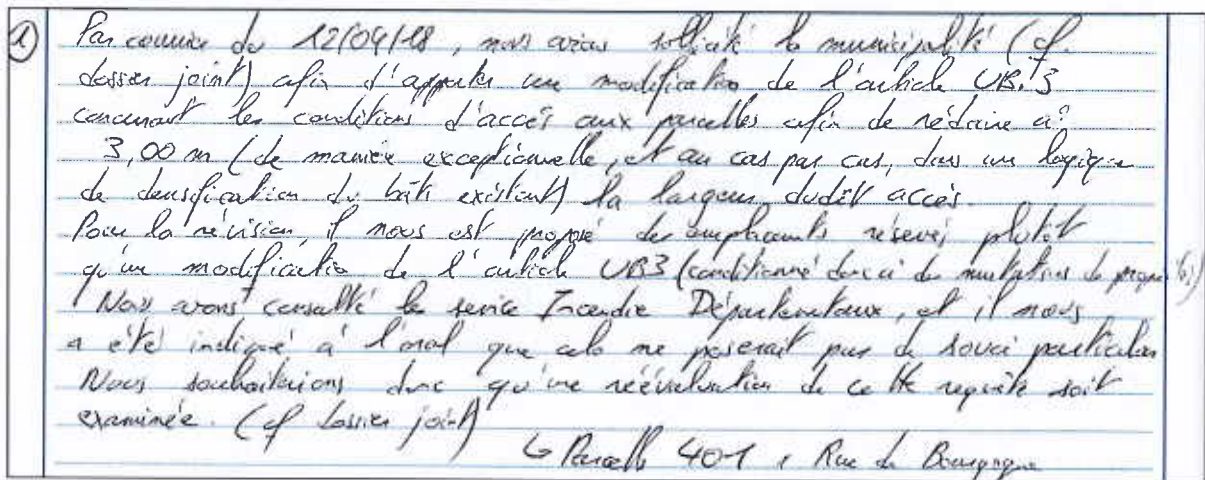 ①
Par courrier du 12/04/18, nous avions sollicité la municipalité (cf.
dossier joint) afin d'apporter une modification de l'article UB.3
concernant les conditions d'accès aux parcelles afin de réduire à
3,00 m (de manière exceptionnelle, et au cas par cas, dans une logique
de densification du bâti existant) la largeur dudit accès.
Pour la révision, il nous est proposé des emplacements réservés plutôt
qu'une modification de l'article UB3 (conditionné donc à des mutations de propriétés)
Nous avons consulté le service Incendie Départementaux, et il nous
a été indiqué à l'oral que cela ne poserait pas de souci particulier
Nous souhaiterions donc qu'une réévaluation de cette requête soit
examinée. (cf dossier joint)
↳ Parcelle 401, Rue de Bourgogne